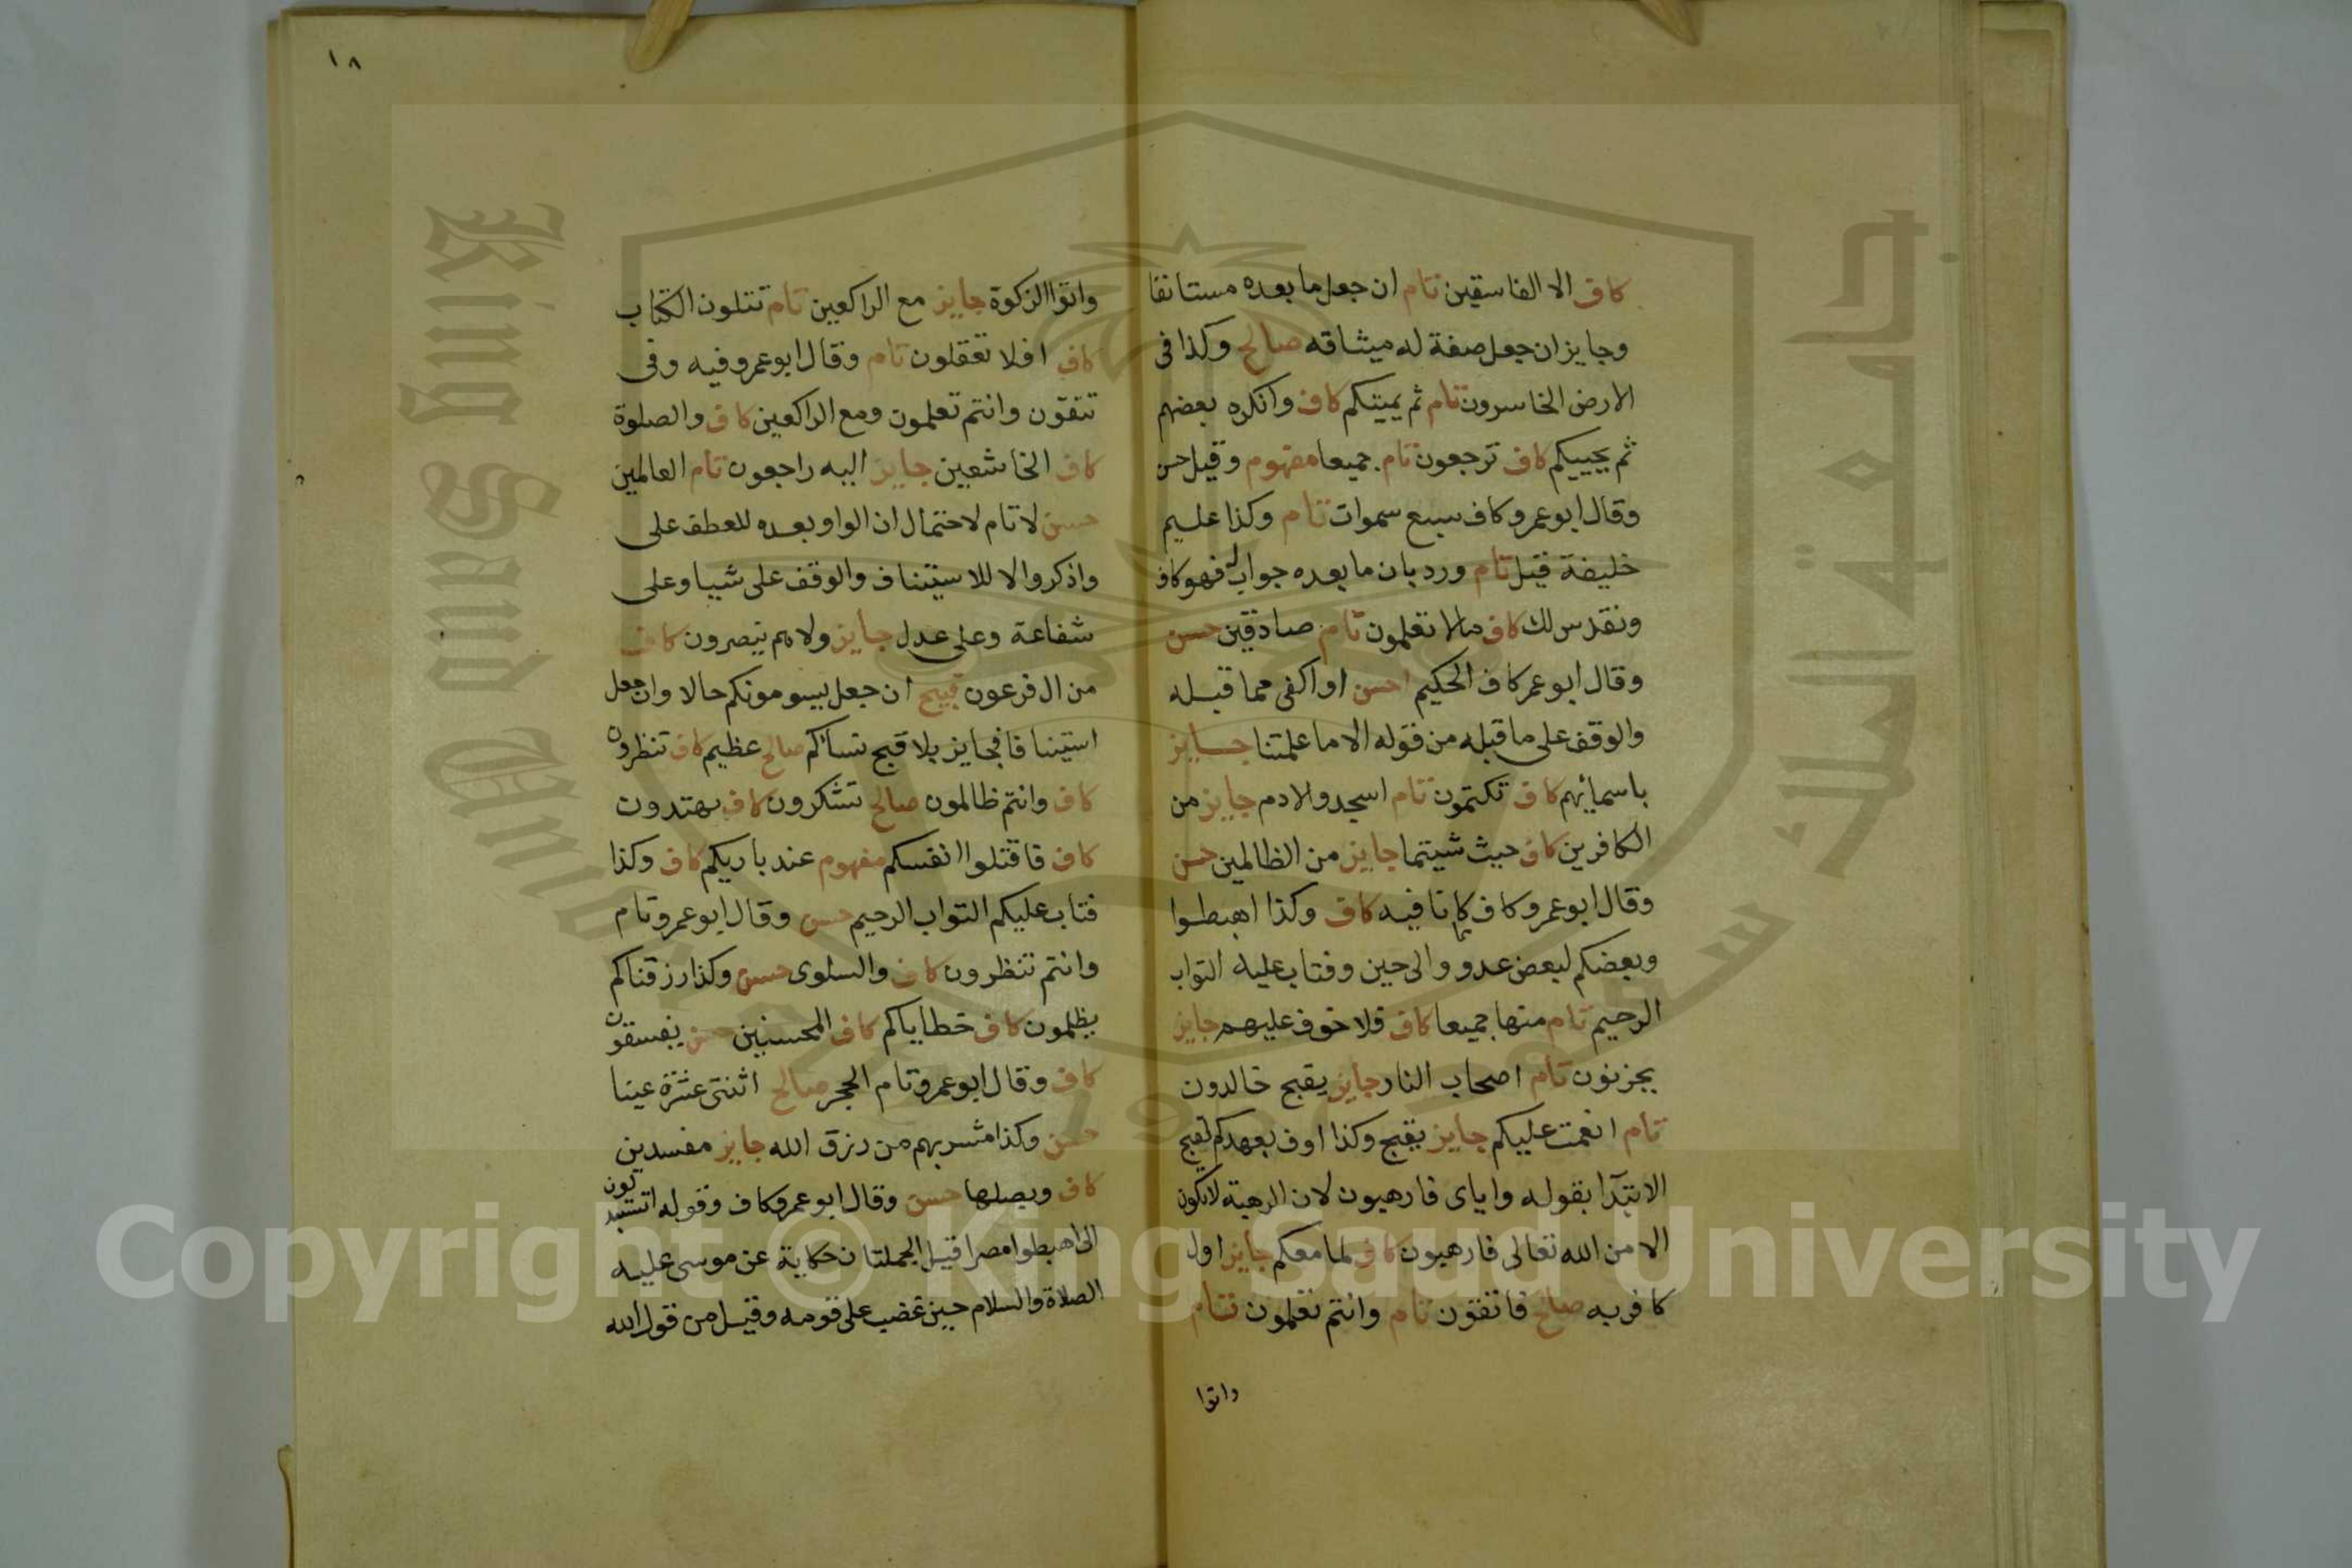 ١٨
كاف الا الفاسقين تام ان جعل ما بعده مستانفا
وجايز ان جعل صفة له ميثاقه صالح وكذا فى
الارض الخاسرون تام ثم يميتكم كاف وانكره بعضهم
ثم يحييكم كاف ترجعون تام جميعا مفهوم وقيل حسن
وقال ابو عمرو كاف سبع سموات تام وكذا عليم
خليفة قيل تام ورد بان ما بعده جواب له فهو كاف
ونقدس لك كاف مالا تعلمون تام صادقين حسن
وقال ابو عمر كاف الحكيم احسن او اكفى مما قبله
والوقف على ما قبله من قوله الا ما علمتنا جايز
باسمائهم كاف تكتمون تام اسجدوا لادم جايز من
الكافرين كاف حيث شيتما جايز من الظالمين حسن
وقال ابو عمرو كاف كانا فيه كاف وكذا اهبطوا
وبعضكم لبعض عدو والى حين وفتاب عليه التواب
الرحيم تام منها جميعا كاف فلا خوف عليهم جايز
يحزنون تام اصحاب النار جايز يقبح خالدون
تام انعمت عليكم جايز يقبح وكذا اوف بعهدكم لقبح
الابتدا بقوله واياى فارهبون لان الرهبة لا تكون
الا من الله تعالى فارهبون كاف لما معكم جايز اول
كافر به صالح فاتقون تام وانتم تعلمون تام
واتوا
واتوا الزكوة جايز مع الراكعين تام تتلون الكتاب
كاف افلا تعقلون تام وقال ابو عمرو فيه وفى
تتقون وانتم تعلمون ومع الراكعين كاف والصلوة
كاف الخاشعين جايز اليه راجعون تام العالمين
حسن لا تام لاحتمال ان الواو بعده للعطف على
واذكروا لا للاستيناف والوقف على شيا وعلى
شفاعة وعلى عدل جايز ولا هم ينصرون كاف
من ال فرعون قبيح ان جعل يسومونكم حالا وان جعل
استينافا فجايز بلا قبح نساكم صالح عظيم كاف تنظرون
كاف وانتم ظالمون صالح تشكرون كاف تهتدون
كاف فاقتلوا انفسكم مفهوم عند باريكم كاف وكذا
فتاب عليكم التواب الرحيم حسن وقال ابو عمرو تام
وانتم تنظرون كاف والسلوى حسن وكذا رزقناكم
يظلمون كاف خطاياكم كاف المحسنين حسن يفسقون
كاف وقال ابو عمرو تام الحجر صالح اثنتى عشرة عينا
حسن وكذا مشربهم من رزق الله جايز مفسدين
كاف وبصلها حسن وقال ابو عمرو كاف وقوله اتستبدلون
الى اهبطوا مصرا قيل الجملتان حكاية عن موسى عليه
الصلاة والسلام حين غضب على قومه وقيل من قول الله
King Saud University
جامعة الملك سعود
1957
Copyright © King Saud University